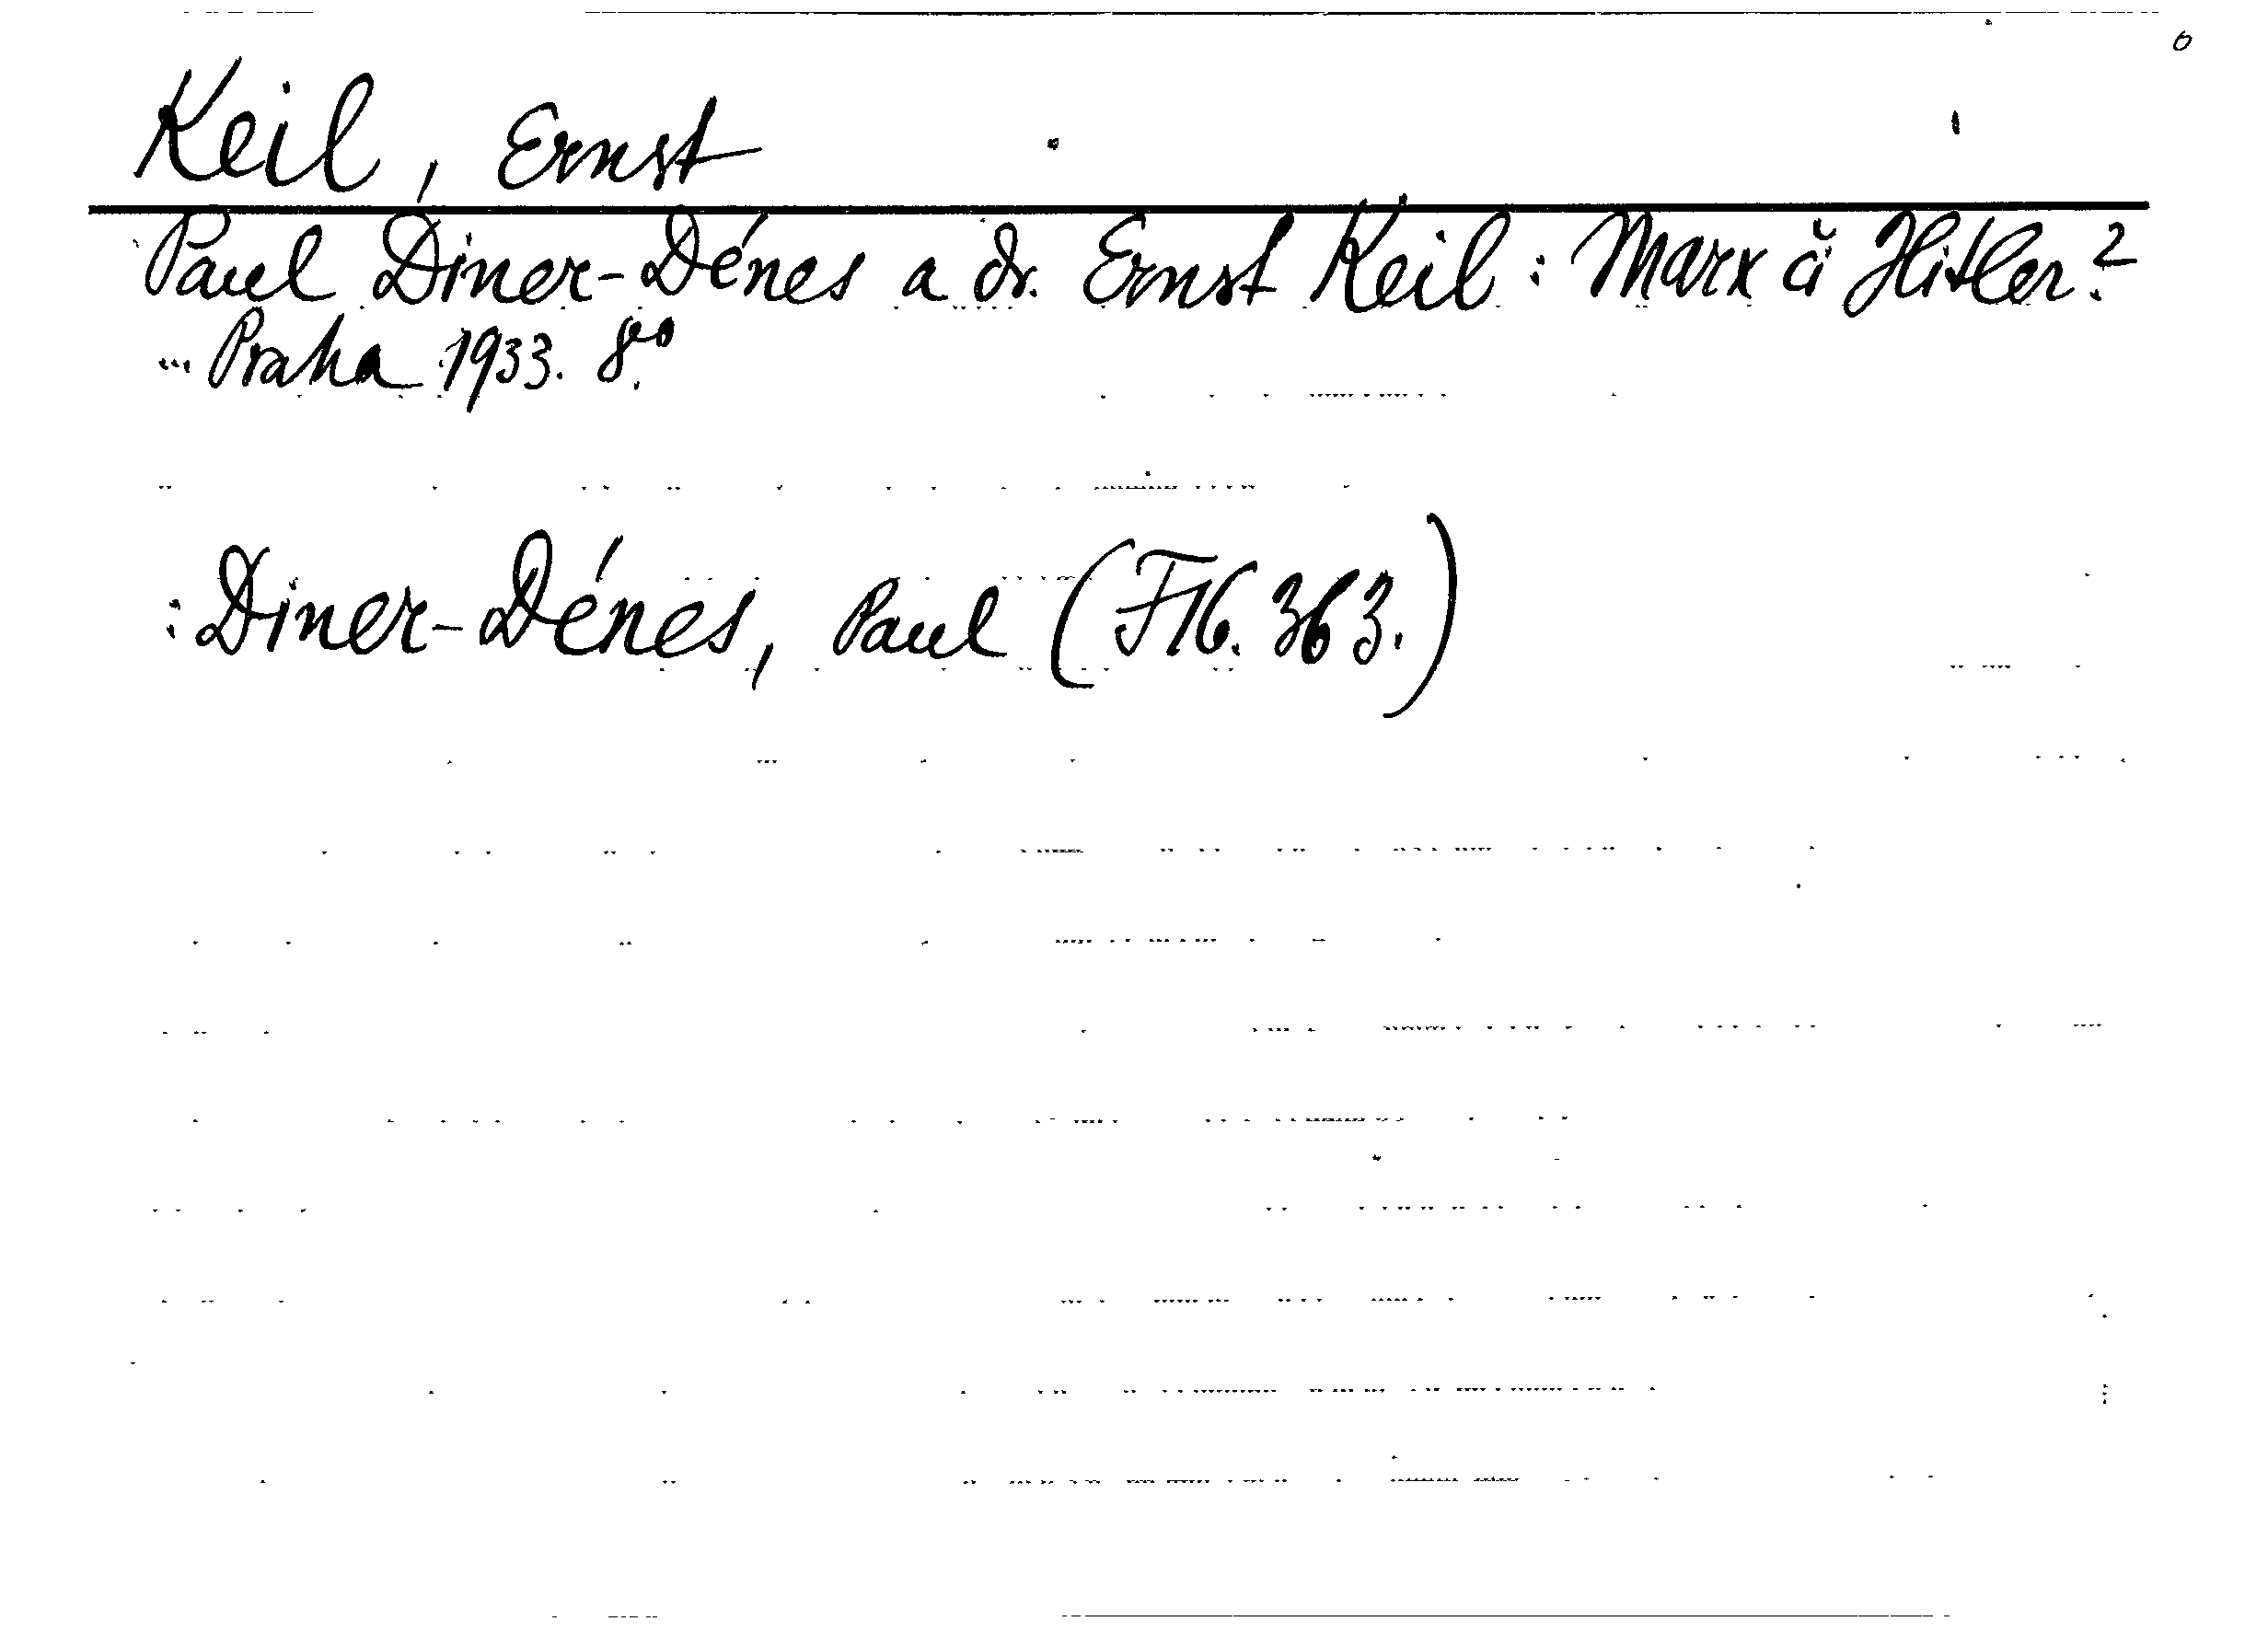 Keil, Ernst
Paul Diner-Dénes a dr. Ernst Keil: Marx či Hitler?
... Praha 1933. 8°.
: Diner-Dénes, Paul (F 16. 363.)